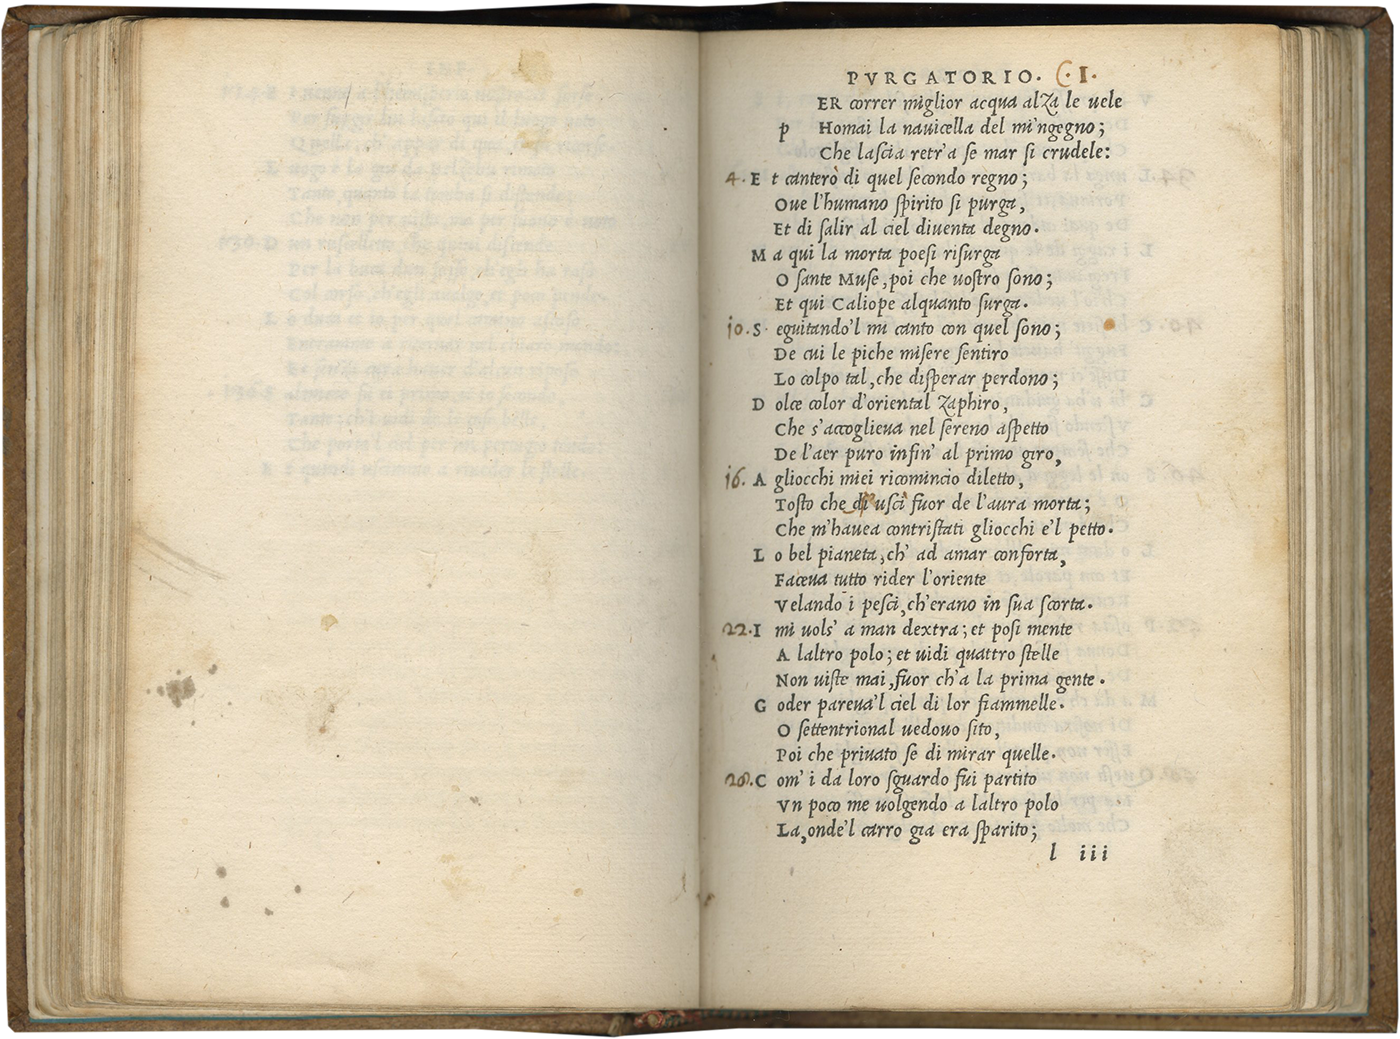 PVRGATORIO. C. I.
ER correr miglior acqua alza le uele
p Homai la nauicella del mi'ngegno;
Che lascia retr'a se mar si crudele:
4. E t canterò di quel secondo regno;
Oue l'humano spirito si purga,
Et di salir al ciel diuenta degno.
M a qui la morta poesi risurga
O sante Muse, poi che uostro sono;
Et qui Caliope alquanto surga.
10. S eguitando'l mi canto con quel sono;
De cui le piche misere sentiro
Lo colpo tal, che disperar perdono;
D olce color d'oriental Zaphiro,
Che s'accoglieua nel sereno aspetto
De l'aer puro infin' al primo giro,
16. A gliocchi miei ricomincio diletto,
Tosto che di usci fuor de l'aura morta;
Che m'hauea contristati gliocchi e'l petto.
L o bel pianeta, ch' ad amar conforta,
Faceua tutto rider l'oriente
Velando i pesci, ch'erano in sua scorta.
22. I mi uols' a man dextra; et posi mente
A laltro polo; et uidi quattro stelle
Non uiste mai, fuor ch'a la prima gente.
G oder pareua'l ciel di lor fiammelle.
O settentrional uedouo sito,
Poi che priuato se di mirar quelle.
28. C om' i da loro sguardo fui partito
Vn poco me uolgendo a laltro polo
La, onde'l carro gia era sparito;
l iii